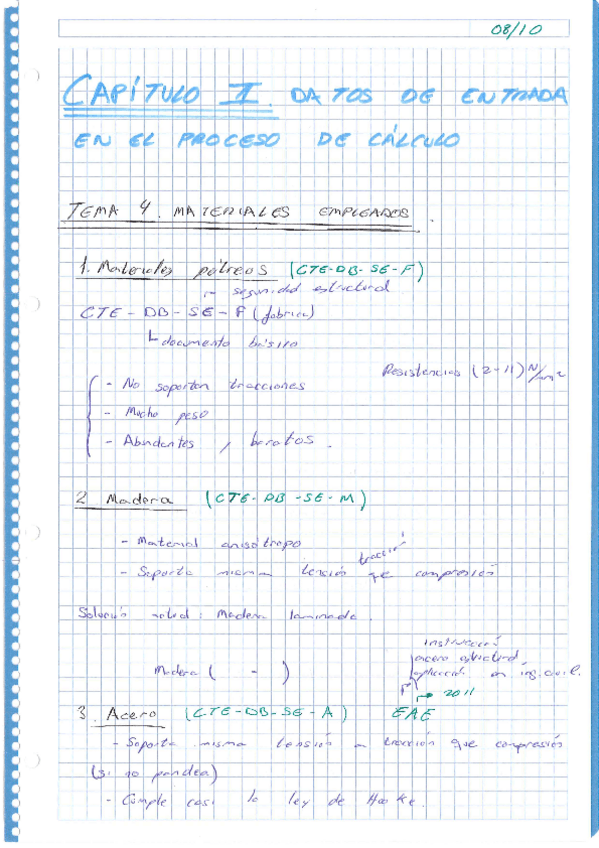 08/10
CAPÍTULO II. DATOS DE ENTRADA
EN EL PROCESO DE CÁLCULO
TEMA 4. MATERIALES EMPLEADOS.
1. Materiales pétreos (CTE-DB-SE-F)
seguridad estructural
CTE-DB-SE-F (fabrica)
documento básico
Resistencias (2-11) N/mm²
- No soportan tracciones
- Mucho peso
- Abundantes, baratos.
2 Madera (CTE-DB-SE-M)
- Material anisótropo
tracción
- Soporta misma tensión que compresión
Solución : Madera laminada.
Madera ( - )
instrucción
acero estructural
aplicación en ing. civil.
2011
3. Acero (CTE-DB-SE-A) EAE
- Soporta misma tensión a tracción que compresión
(si no pandea)
- Cumple casi la ley de Hooke.